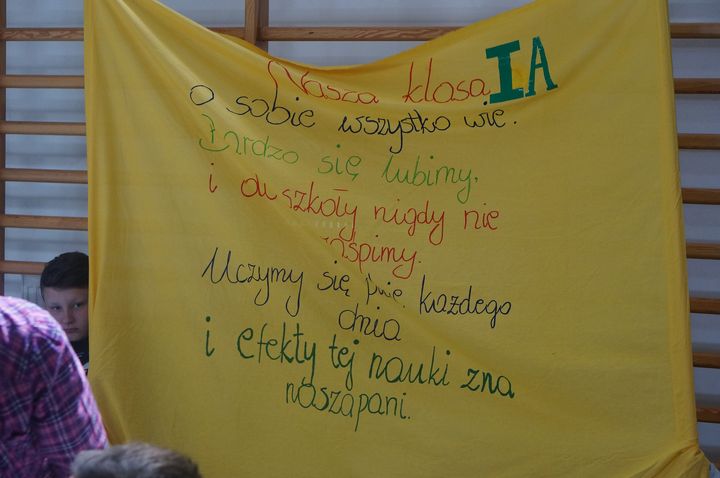 Nasza klasa IA
o sobie wszystko wie.
Bardzo się lubimy,
i do szkoły nigdy nie
zaśpimy.
Uczymy się pilnie każdego
dnia
i efekty tej nauki zna
nasza pani.